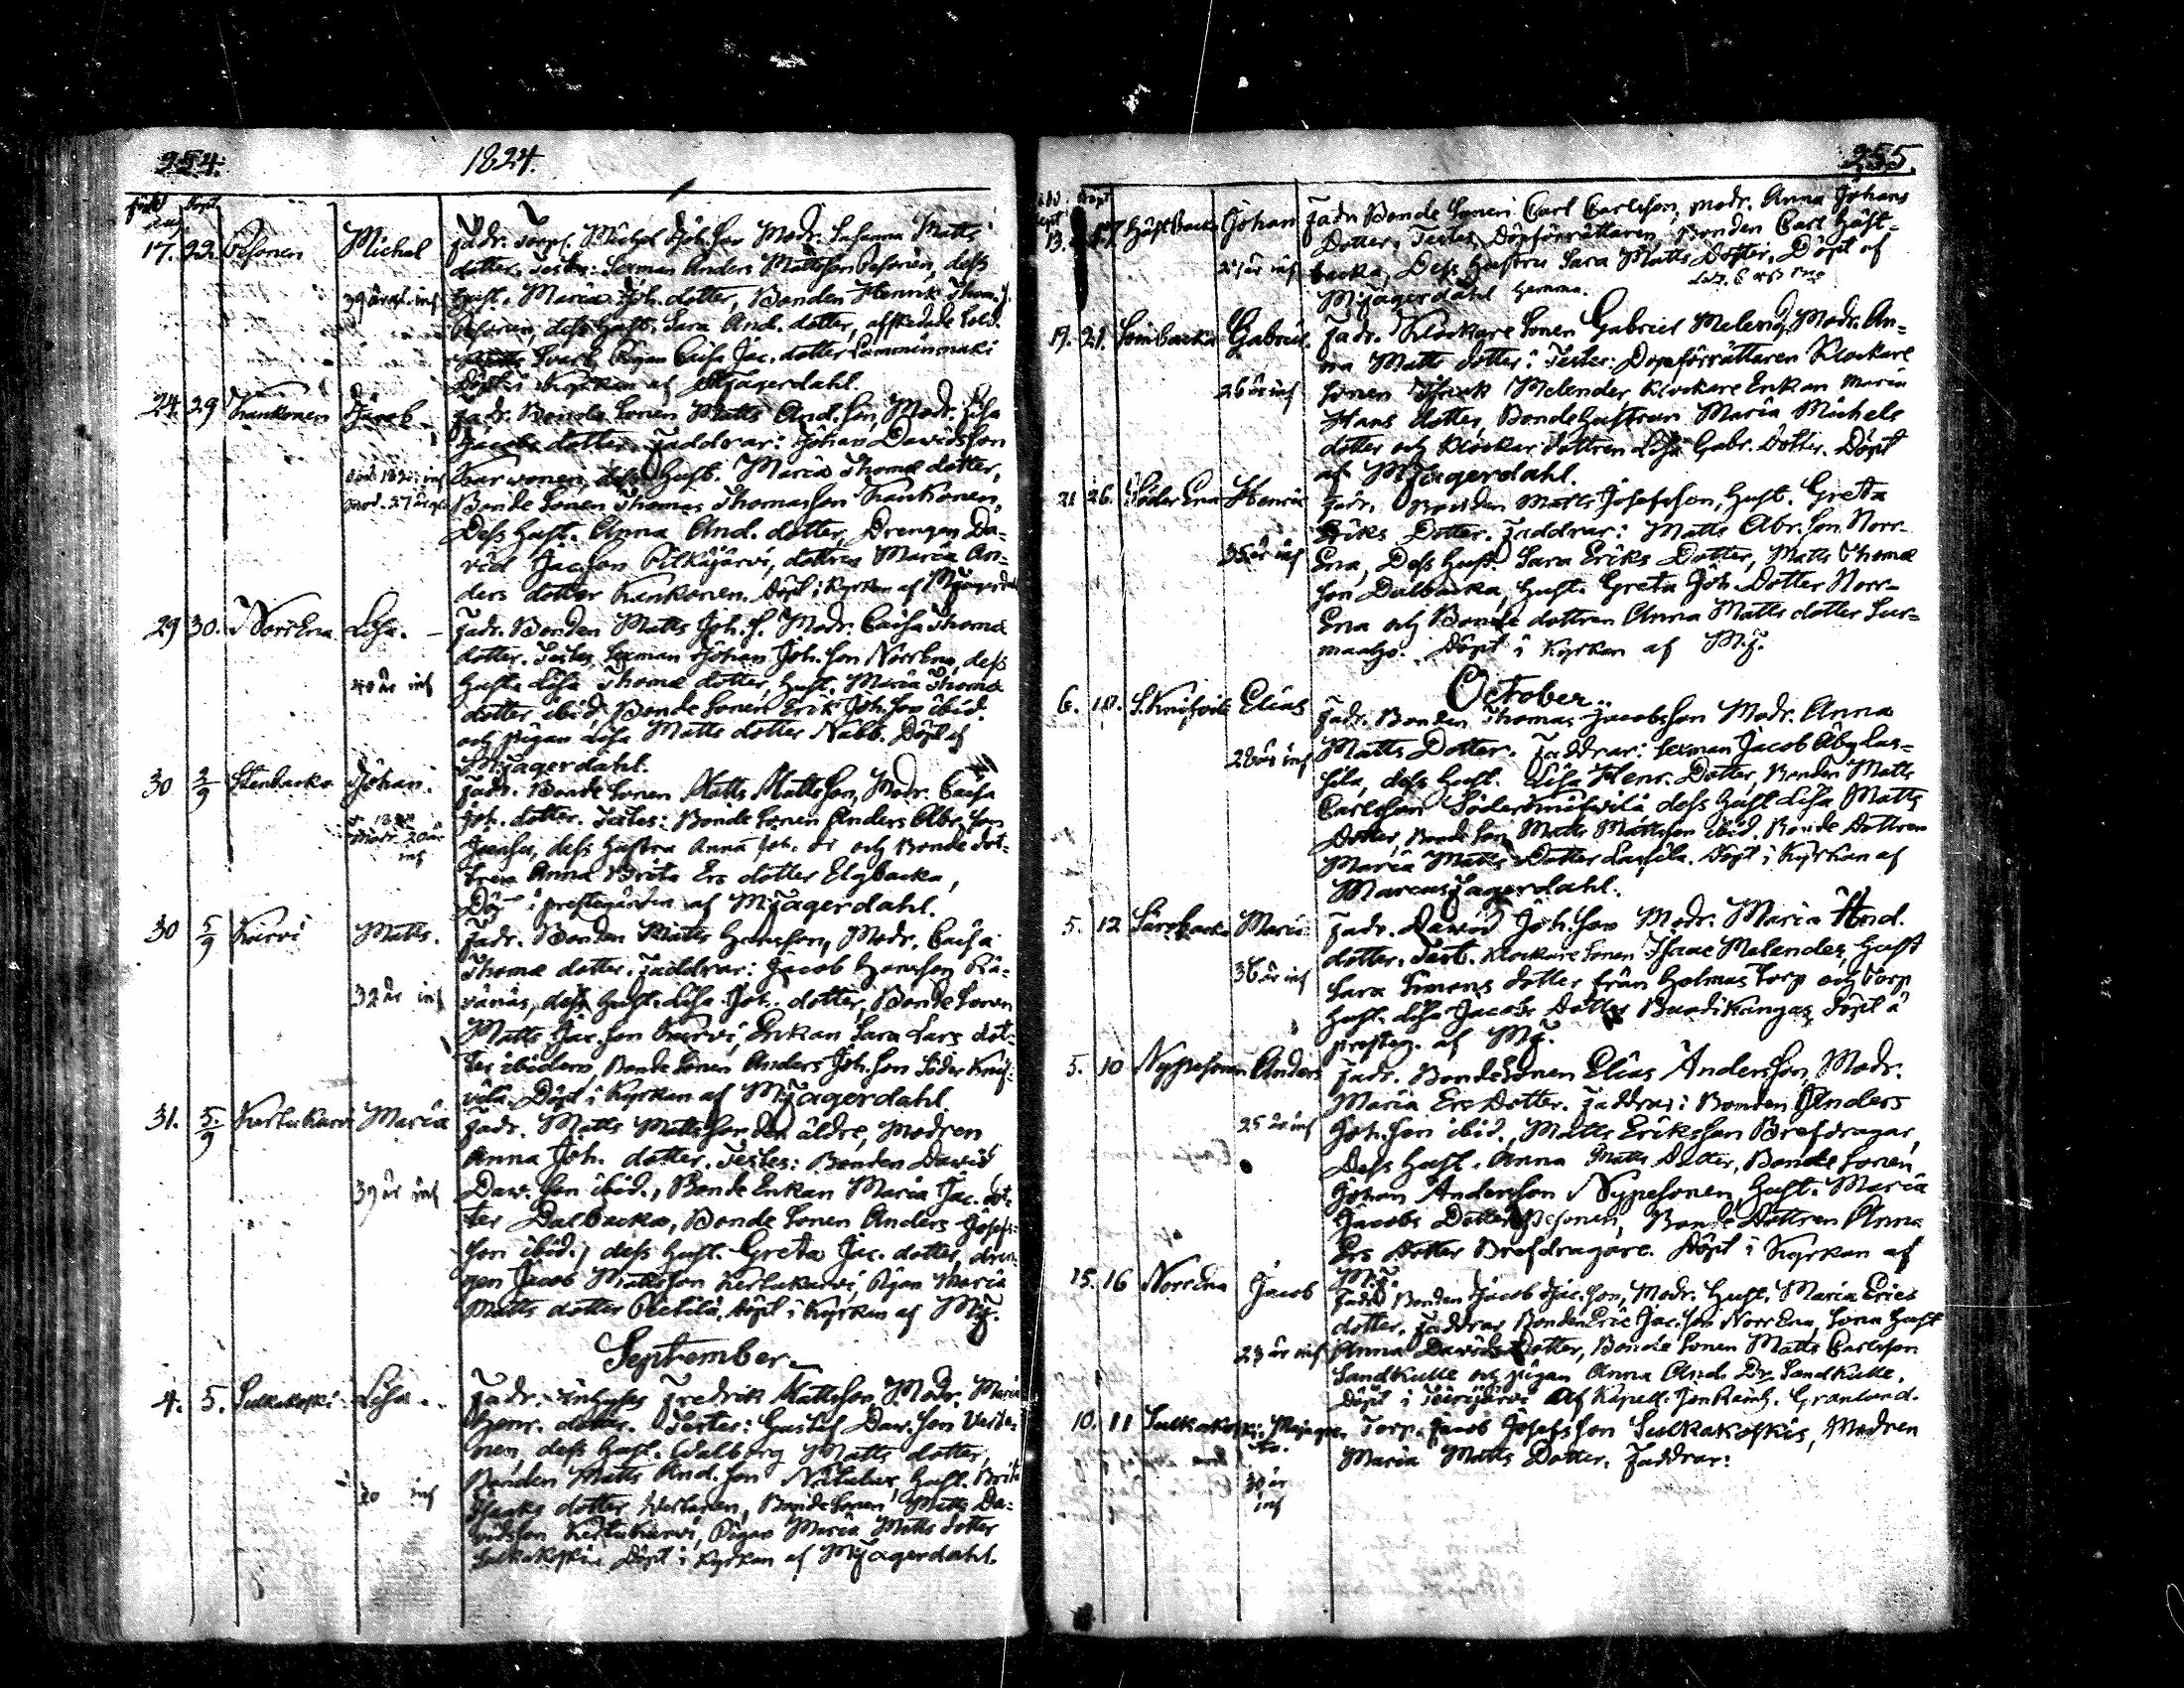 254.
1824.
född Döpt.
aug.
17. 22. Pesonen Michel Fadr. Torp. Michel Joh. Son Modr. Susanna Matts
dotter. Testes: Sexman Anders Mattsson Pesonen, dess
39 år inf Hust. Maria Joh. dotter, Bonden Henrik Thom. s.
Pesonen, dess Hust. Sara And. dotter, afskedade Sold.
Svart, Pigan Caisa Jac. dotter
Döpt i Kyrkan af MFagerdahl.
24. 29 Kankonen Jacob Fadr. Bonde Sonen Matts And. Son, Modr. Lisa
Jacobs dotter. Faddrar: Johan Davidsson
Karvonen, dess Hust. Maria Thomæ dotter,
Modr. 27 år Bonde Sonen Thomas Thomasson Kankonen,
Dess Hust. Anna And. dotter, Drengen Da-
vid Jac. Son Pilkäjärvi, dottren Maria An-
ders dotter Kankonen. Döpt i Kyrkan af MFagerdahl
29 30. NorrEna Lisa. Fadr. Bonden Matts Joh. S. Modr. Caisa Thomæ
dotter. Testes, Sexman Johan Joh. Son NorrEna, dess
40 år inf Hustr. Lisa Thomæ dotter, Hust. Maria Thomæ
dotter ibid, Bonde Sonen Erik Joh. Son ibid.
och pigan Lisa Matts dotter Nabb. Döpt af
MFagerdahl.
30 2/9 Stenbacka Johan. Fadr. Bonde Sonen Matts Mattsson, Modr. Caisa
Joh. dotter. Testes: Bonde Sonen Anders Abr. Son
Modr. 20 år dess Hustru Anna Joh. dr och Bonde dot-
inf tren Anna Brita Ers dotter Elgbacka,
Döpt i prestegården af MFagerdahl.
30 5/9 Kurvi Matts. Fadr. Bonden Matts Hansson, Modr. Caisa
Thomæ dotter. Faddrar: Jacob Hansson Rä-
32 år inf vänäs, dess Hust. Lisa Joh. dotter, Bonde Sonen
Matts Jac. Son Kurvi, Enkan Sara Lars dot-
ter ibidem, Bonde Sonen Anders Joh. Son Söder Knif-
vilä. Döpt i Kyrkan af MFagerdahl
31. 5/9 Kertukarvi Maria Fadr. Matts Mattsson den äldre, Modren
Anna Joh. dotter. Testes: Bonden David
39 år inf Dav. Son ibid., Bonde Enkan Maria Jac. dot-
ter Dalbacka, Bonde Sonen Anders Josefs-
son ibid., dess Hust. Greta Jac. dotter, dren-
gen Jacob Mattsson Kertukarvi, Pigan Maria
Matts dotter Pietilä. Döpt i Kyrkan af MF.
September.
4. 5. Sulkakoski Lisa. Fadr. Inhyses Fredrik Mattsson, Modr. Maria
Henr. dotter. Testes: Gustaf Dav. Son
nen, dess Hust. Walborg Matts dotter,
Bonden Matts And. Son Hust. Brita
30 inf Isacks dotter Bonde Sonen Matts Da-
vidsson Kertukarvi, Pigan Maria Matts dotter
Sulkakoski. Döpt i Kyrkan af MFagerdahl.
255.
född Döpt
Sept
13. 17 Häst Backa Johan Fadr. Bonde Sonen Carl Carlsson, Modr. Anna Johans
Dotter, Testes Döpförrättaren Bonden Carl Häst-
år inf backa, Dess Hustru Sara Matts Dotter, Döpt af
MFagerdahl hemma.
19. 21. Gabriel. Fadr. Klockare Sonen Gabriel Melender, Modr. An-
na Matts dotter: Testes: Döpeförrättaren Klockare
26 år inf Sonen Isack Melender Klockare Enkan Maria
Hans dotter, BondeHustrun Maria Michels
dotter och Klockar dottren Lisa Gabr. Dotter. Döpt
af MFagerdahl.
21 26. Söder Ena Henric Fadr. Bonden Matts Josefsson, Hust. Greta
Eriks Dotter. Faddrar: Matts Abr. Son Norr-
35 år inf Ena, Dess Hust. Sara Eriks Dotter, Matts Thomæ
Son Dalbacka, Hust. Greta Joh. Dotter Norr-
Ena och Bonde dottren Anna Matts dotter
Döpt i Kyrkan af M.F.
October.
6. 10. S. Knifvilä Elias Fadr. Bonden Thomas Jacobsson Modr. Anna
28 år inf Matts Dotter. Faddrar: Sexman Jacob
dess Hust. Lisa Henr. Dotter, Bonden Matts
Carlsson Söderknifvilä dess Hust Lisa Matts
Dotter, Bonde Son Matts Mattsson ibid. Bonde Dottren
Maria Matts Dotter Döpt i Kyrkan af
Marcus Fagerdahl.
5. 12 Maria Fadr. David Joh. Son Modr. Maria And.
dotter. Test. Klockare Sonen Isaac Melender, Hust
36 år inf Sara Simons dotter från Holmas Torp och Torp
Hust. Lisa Jacobs Dotter Döpt i
presteg. af MF.
5. 10 Nypesonen Anders Fadr. BondeSonen Elias Andersson, Modr.
Maria Ers Dotter. Faddrar: Bonden Anders
25 år inf Joh. Son ibid., Matts Eriksson Brefdragar,
Dess Hust. Anna Matts Dotter, Bonde Sonen
Johan Andersson Nypesonen, Hust. Maria
Jacobs Dotter Pesonen, Bonde Dottren Anna
Ers Dotter Brefdragare. Döpt i Kyrkan af
M.F.
15. 16 NorrEna Jacob Fadr. Bonden Jacob Jac. Son, Modr. Hust. Maria Erics
dotter. Faddrar BondenEric Jac. Son NorrEna, Hust
23 år inf Anna Davids Dotter, Bonde Sonen Matts Carlsson
Sandkulle och pigan Anna And. Dr. Sandkulle.
Döpt i Terijärvi af Kapell. Granlund.
10. 11 Sulkakoski. Torp. Jacob Josefsson Sulkakoskis, Modren
30 år Maria Matts Dotter. Faddrar:
inf